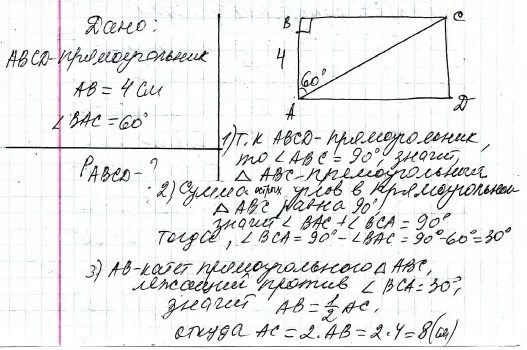 Дано:
ABCD-прямоугольник
AB = 4 см
∠BAC = 60°
P ABCD - ?
B
C
4
60°
A
D
1) Т.к ABCD - прямоугольник,
то ∠ABC = 90°, значит,
△ ABC - прямоугольный
2) Сумма острых углов в прямоугольном
△ ABC равна 90°,
значит ∠BAC + ∠BCA = 90°
Тогда, ∠BCA = 90° - ∠BAC = 90° - 60° = 30°
3) AB - катет прямоугольного △ABC,
лежащий против ∠BCA = 30°,
значит AB = 1/2 AC,
откуда AC = 2·AB = 2·4 = 8 (см)